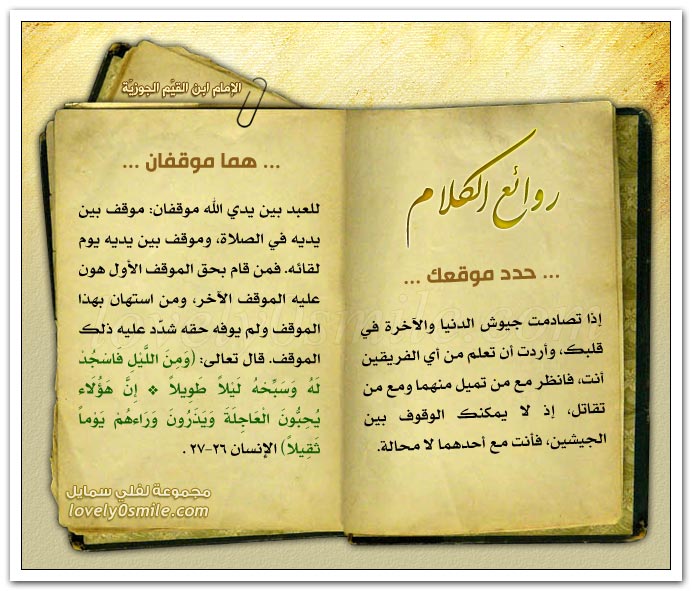 الإمام ابن القيَّم الجوزيَّة
روائع الكلام
... حدد موقعك ...
إذا تصادمت جيوش الدنيا والآخرة في
قلبك، وأردت أن تعلم من أي الفريقين
أنت، فانظر مع من تميل منهما ومع من
تقاتل، إذ لا يمكنك الوقوف بين
الجيشين، فأنت مع أحدهما لا محالة.
... هما موقفان ...
للعبد بين يدي الله موقفان: موقف بين
يديه في الصلاة، وموقف بين يديه يوم
لقائه. فمن قام بحق الموقف الأول هون
عليه الموقف الآخر، ومن استهان بهذا
الموقف ولم يوفه حقه شدّد عليه ذلك
الموقف. قال تعالى: (وَمِنَ اللَّيْلِ فَاسْجُدْ
لَهُ وَسَبِّحْهُ لَيْلاً طَوِيلاً ❖ إِنَّ هَؤُلَاء
يُحِبُّونَ الْعَاجِلَةَ وَيَذَرُونَ وَرَاءهُمْ يَوْماً
ثَقِيلاً) الإنسان ٢٦-٢٧ .
مجموعة لفلي سمايل
lovely0smile.com